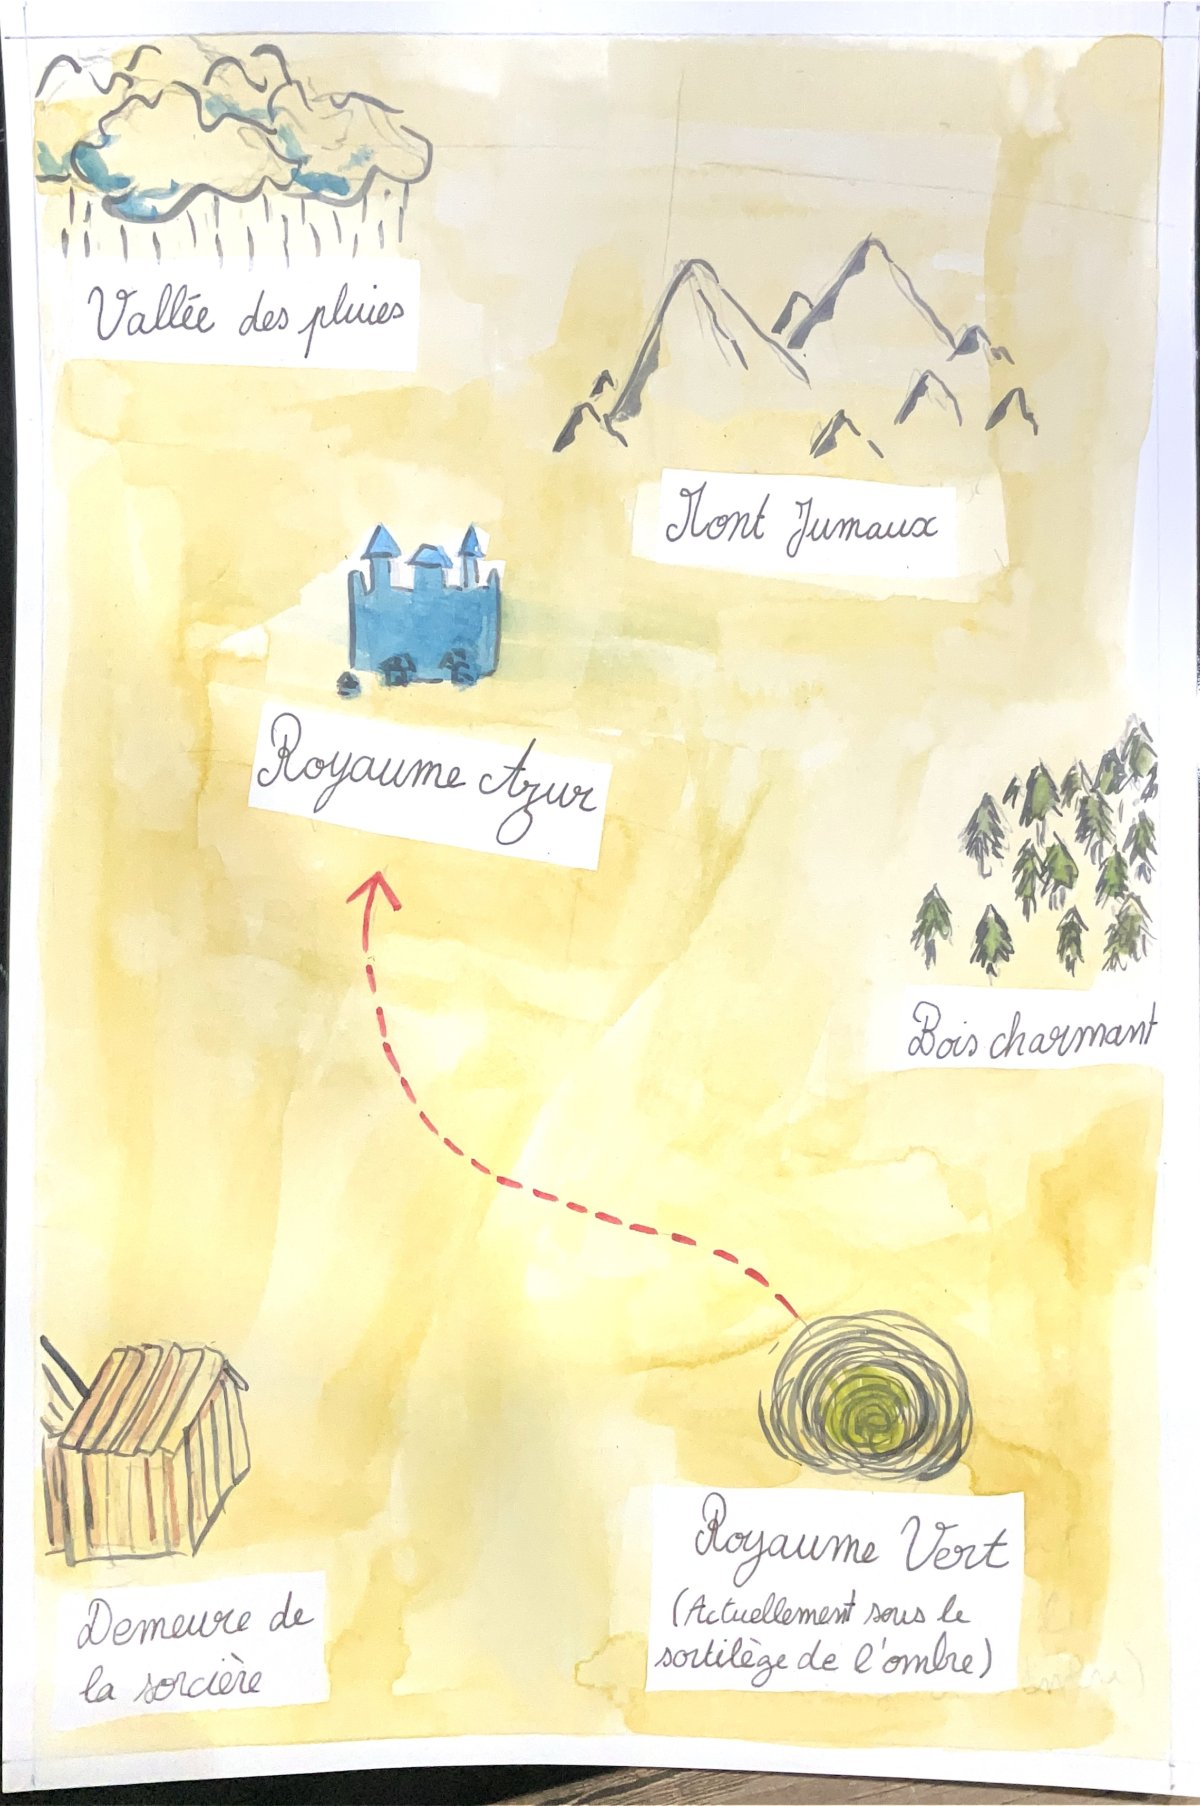 Vallée des pluies
Mont Jumaux
Royaume Azur
Bois charmant
Demeure de
la sorcière
Royaume Vert
(Actuellement sous le
sortilège de l'ombre)